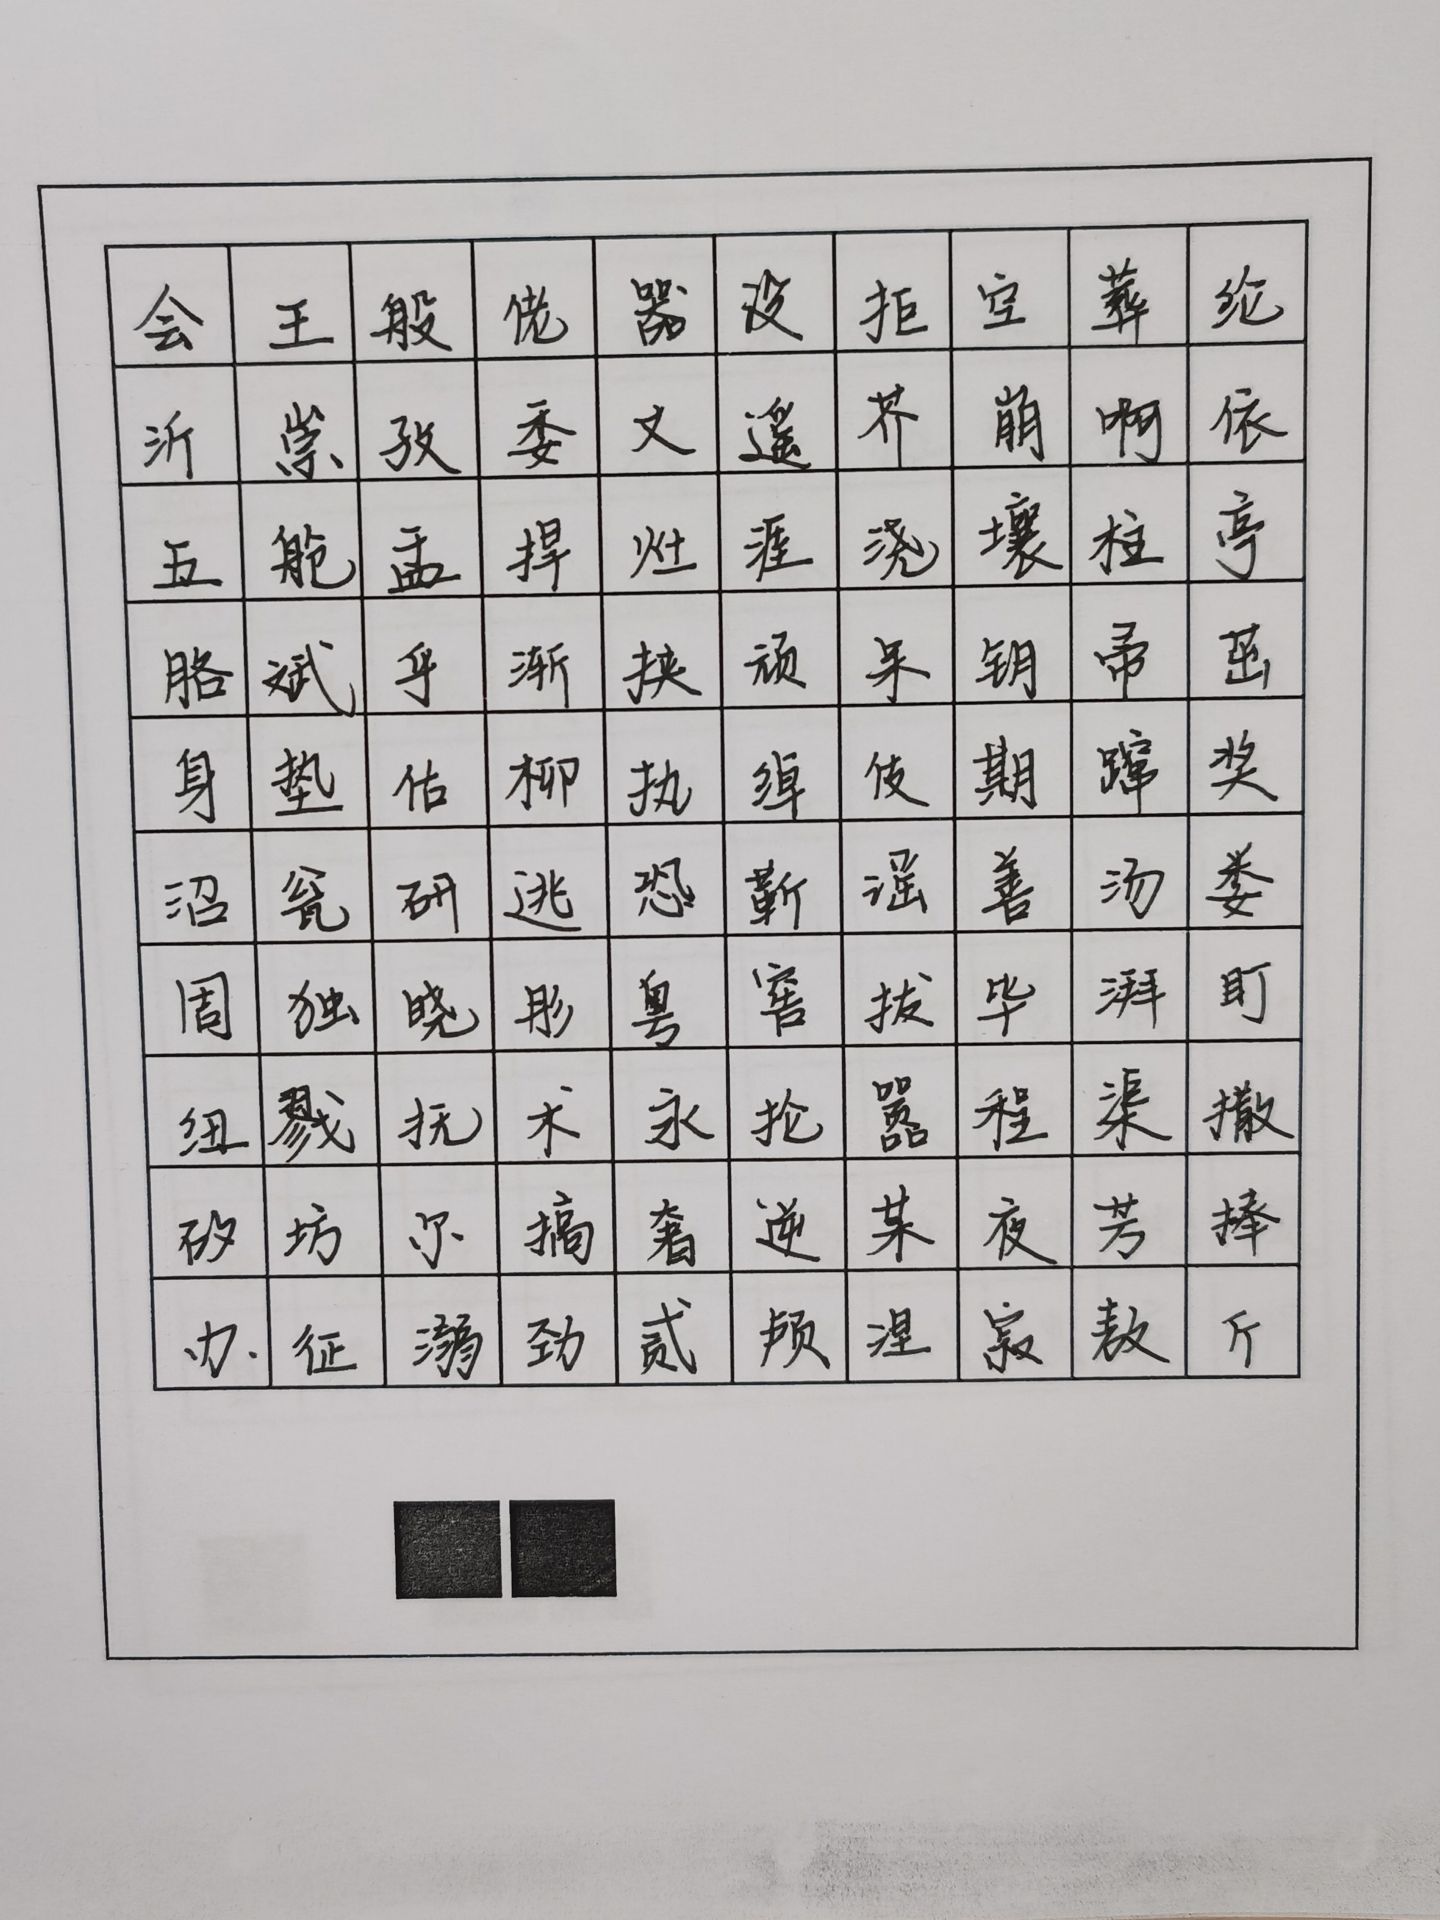 会王般佬器没拒空葬纶
沂崇孜委文遥芥崩啊依
五舱孟捍灶涯浇壤柱亭
胳斌乎渐挟顽呆钥帚茁
身垫估柳执绰伎期蹿奖
沼瓮研逃恐蕲谣善汤娄
周独晓彤粤窖拔毕湃盯
纽戮抚术永抡嚣程渠撒
砂坊尔搞奢逆某夜芳捧
办征溺劲贰颅涅寂敖斤